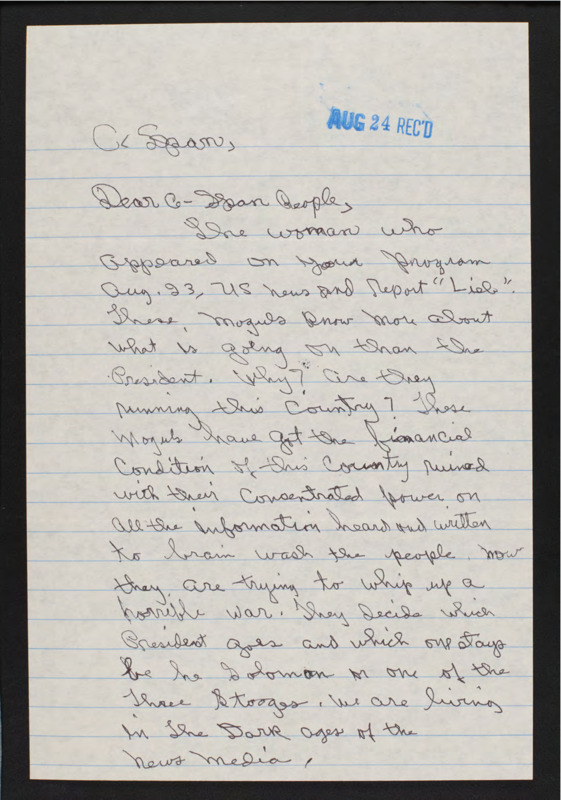 AUG 24 REC'D
C Span,
Dear C-Span People,
The woman who
appeared on your program
Aug. 23, US News and Report "Lied".
These, moguls know more about
what is going on than the
President. Why? Are they
running this Country? These
Moguls have got the financial
Condition of this Country ruined
with their Concentrated power on
all the information heard and written
to brain wash the people. Now
they are trying to whip up a
horrible war. They decide which
President goes and which one stays
be he Solomon or one of the
Three Stooges. We are living
in the Dark ages of the
News Media.